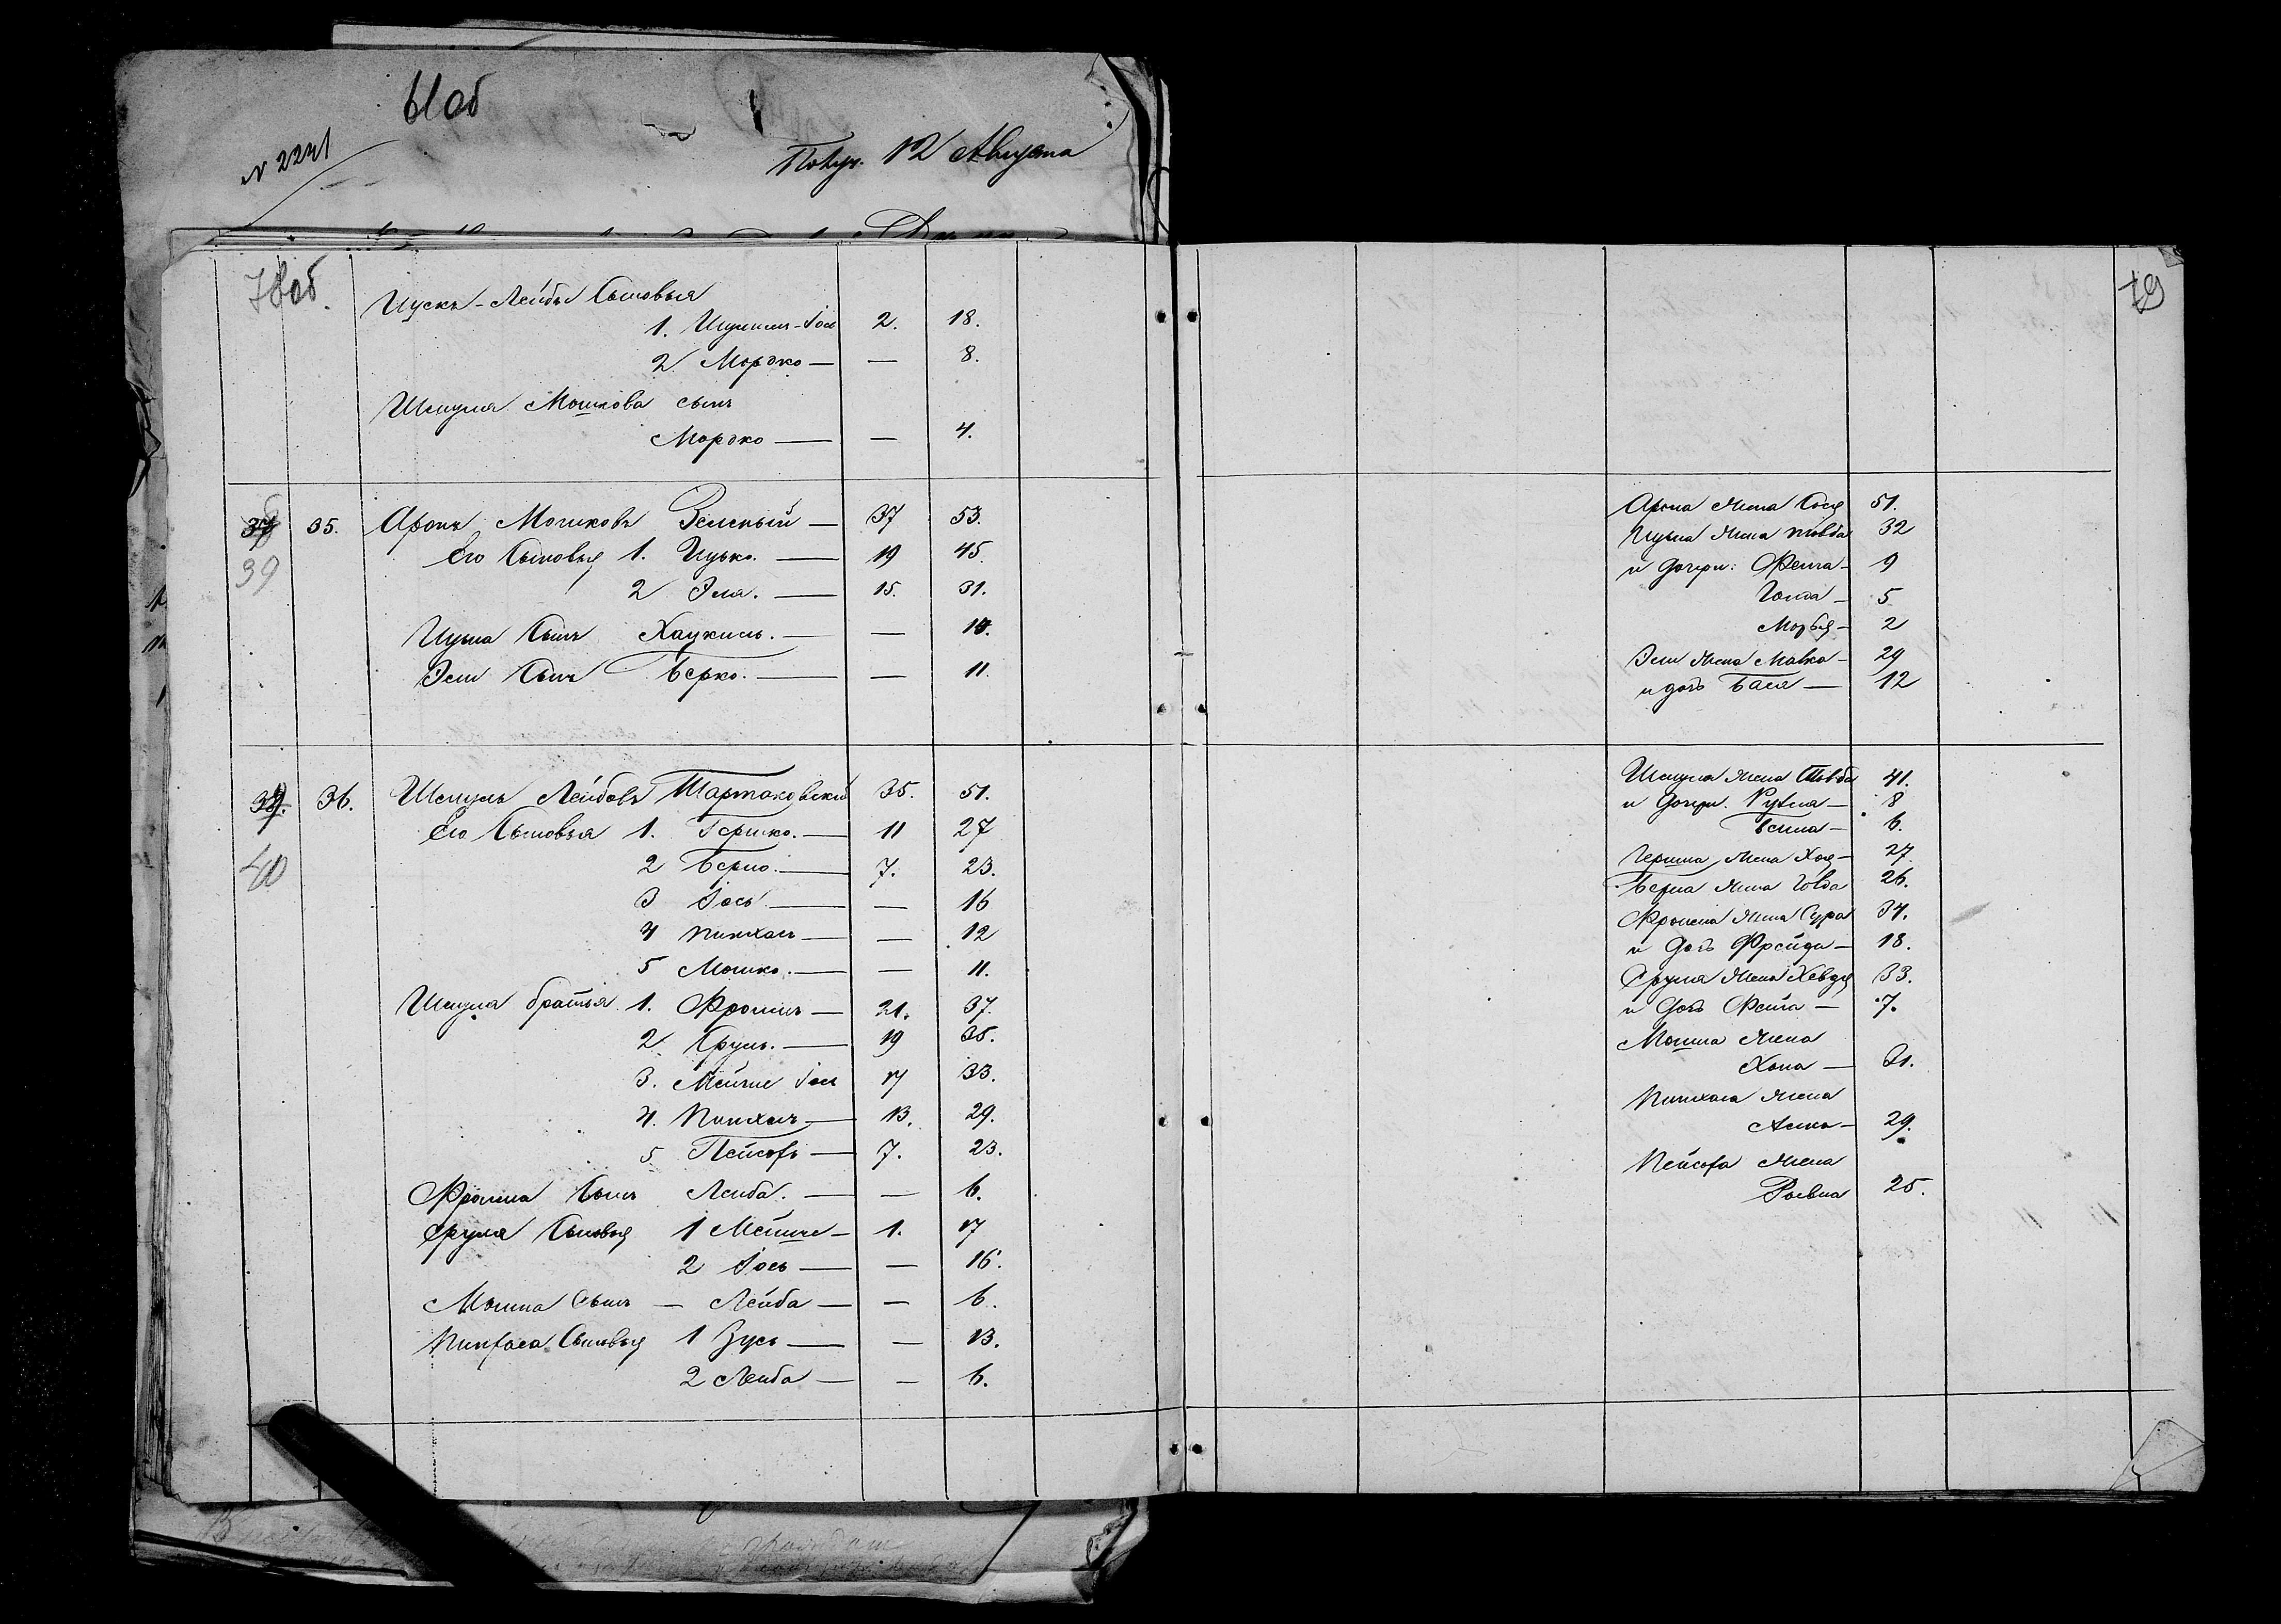 61 об
N 2241
Получ. 12 Августа
78 об.
Ицскъ-Лейбы Сыновья
1. -Іось 2. 18.
2 Мордко — — 8.
Шмуля Мошкова сынъ
Мордко — — 4.
35. Аронъ Мошковъ Зеленый — 37 53.
39
Его Сыновья 1. Ицько. — 19 45.
2 Эля. — 15. 31.
Ицька Сынъ Хаукиль. — —
Эли Сынъ Берко. — — 11.
36. Шмуль Лейбовъ Тартаковскій 35. 51.
Его Сыновья 1. Гершко. — 11 27
40
2 Берко. — 7. 23.
3 Іось — — 16
4 Пинхасъ — — 12
5 Мошко. — — 11.
Шмуля братья 1. Фроимъ — 21. 37.
2. Сруль. — 19 35.
3. Мейше Іось 17 33.
4. Пинхасъ — 13. 29.
5 Пейсахъ — 7. 23.
Фроима Сынъ Лейба. — — 6.
Сруля Сыновья 1 Мейше — 1. 17
2 Іось — — 16.
Мошка Сынъ — Лейба — — 6.
Пинхаса Сыновья 1 Зусь — — 13.
2 Лейба — — 6.
79
Арона жена Сося 51.
Ицька жена Товба 32
и дочери: Фейга — 9
Голда — 5
2
Эли жена Малка — 29
и дочь Бася — 12
Шмуля жена Товба 41.
и дочери. Рухля — 8
Бейла — 6.
Гершка жена Хая — 27.
Берка жена Голда 26.
Фроима жена Сура 34.
и дочь Фрейда — 18.
Сруля жена 33.
и дочь Фейга — 7.
Мошка жена
Хана — 31.
Пинхаса жена
29.
Пейсаха жена
25.